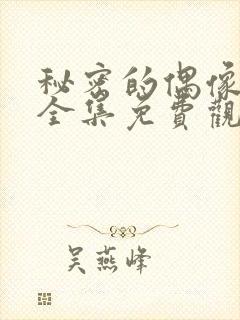 秘密的偶像
全集免費觀
吴燕峰